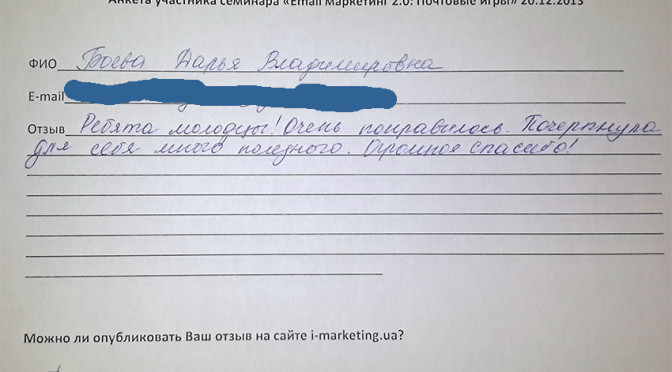 Анкета участника семинара «Email маркетинг 2.0: Почтовые игры» 20.12.2013
ФИО Боева Дарья Владимировна
E-mail
Отзыв Ребята молодцы! Очень понравилось. Почерпнула
для себя много полезного. Огромное спасибо!
Можно ли опубликовать Ваш отзыв на сайте i-marketing.ua?